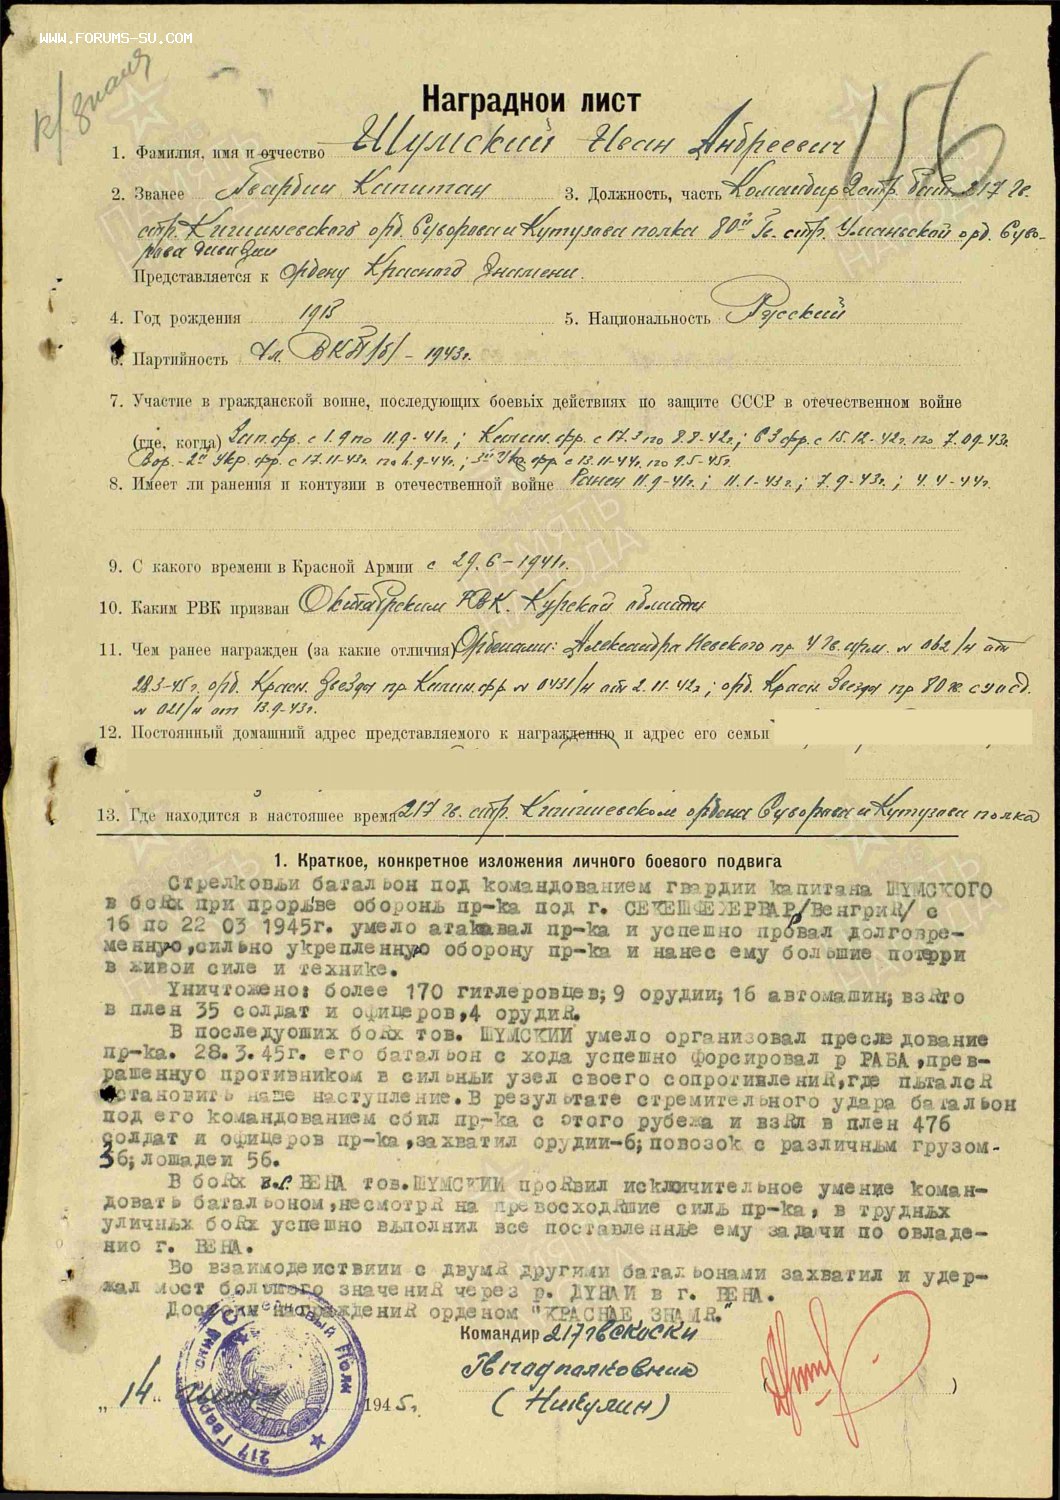 WWW.FORUMS-SU.COM
к/знамя
156
Наградной лист
1. Фамилия, имя и отчество Шумский Иван Андреевич
2. Званее Гвардии Капитан 3. Должность, часть Командир 2 стр. бат. 217 Гв.
стр. Кишиневского орд. Суворова и Кутузова полка 80й Гв. стр. Уманьской орд. Суво-
рова дивизии
Представляется к Ордену Красного Знамени.
4. Год рождения 5. Национальность Русский
6. Партийность Чл. ВКП/б/ - 1943г.
7. Участие в гражданской воине, последующих боевых действиях по защите СССР в отечественном войне
(где, когда) Зап. фр. с 1.9 по 11.9-41г.; Калин. фр. с 17.3 по 8.8-42г.; СЗ фр. с 15.12-42г. по 7.09.43г.
Вор.-2й Укр. фр. с 17.11-43г. по 4.9-44г.; 3й Укр фр с 13.11-44г. по 9.5-45г.
8. Имеет ли ранения и контузии в отечественной войне Ранен 11.9-41г.; 11.1-43г.; 7.9-43г.; 4.4-44г.
9. С какого времени в Красной Армии с 29.6-1941г.
10. Каким РВК призван Октябрским РВК. Курской области
11. Чем ранее награжден (за какие отличия) Орденами: Александра Невского пр. 4 Гв. арм. № 062/н от
28.3-45г. орд. Красн. Звезда пр. Калин. фр № 0431/н от 2.11.42г; орд. Красн. Звезда пр 80 гв. сд
№ 021/н от 13.9-43г.
12. Постоянный домашний адрес представляемого к награждению и адрес его семьи
13. Где находится в настоящее время 217 гв. стр. Кишиневском ордена Суворова и Кутузова полка
1. Краткое, конкретное изложения личного боевого подвига
Стрелковьй батальон под командованием гвардии капитана ШУМСКОГО
в боях при прорьве обороны пр-ка под г. СЕКЕШФЕХЕРВАР/Венгрия/ с
16 по 22 03 1945г. умело атаковал пр-ка и успешно провал долговре-
менную,сильно укрепленную оборону пр-ка и нанес ему большие потери
в живой силе и технике.
Уничтожено: более 170 гитлеровцев; 9 орудии; 16 автомашин; взято
в плен 35 солдат и офицеров,4 орудия.
В последуюших боях тов. ШУМСКИИ умело организовал преследование
пр-ка. 28.3.45г. его батальон с хода успешно форсировал р РАБА,прев-
ращенную противником в сильньи узел своего сопротивления,где пытался
остановить наше наступление.В результате стремительного удара батальон
под его командованием сбил пр-ка с этого рубежа и взял в плен 476
солдат и офицеров пр-ка,захватил орудии-6; повозок с различным грузом-
36; лошадеи 56.
В боях в г. ВЕНА тов.ШУМСКИИ проявил исключительное умение коман-
довать батальоном,несмотря на превосходяшие силь пр-ка, в трудных
уличных боях успешно выполнил все поставленные ему задачи по овладе-
нию г. ВЕНА.
Во взаимодеиствиии с двумя другими батальонами захватил и удер-
жал мост большого значения через р. ДУНАИ в г. ВЕНА.
Достоин награждения орденом "КРАСНОЕ ЗНАМЯ."
Командир 217 гвскоски
Гв подполковник
(Никулин)
„14“ 1945г.
217 Гвардейский Стрелковый Полк